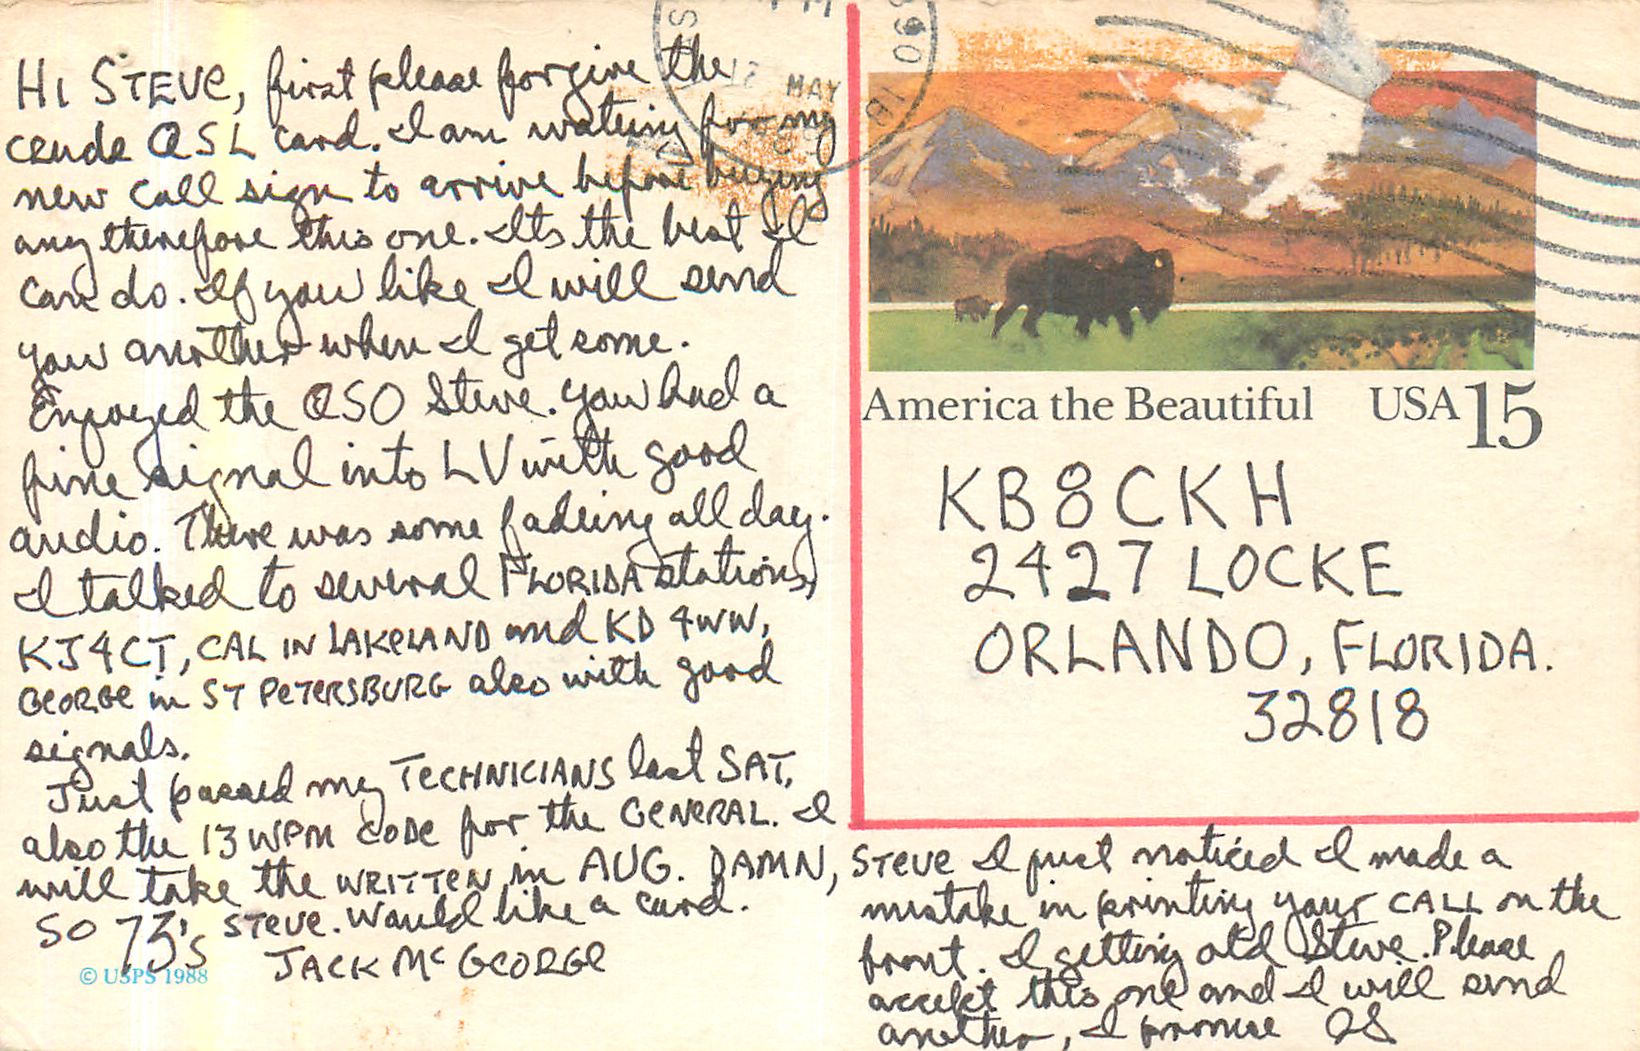 HI STEVE, first please forgive the
crude QSL card. I am wateing for my
new call sign to arrive before buying
any therefore this one. Its the best I
can do. If you like I will send
you another when I get some.
Enjoyed the QSO Steve. You had a
fine signal into LV with good
audio. There was some fadeing all day.
I talked to several FLORIDA stations,
KJ4CT, CAL IN LAKELAND and KD4WW,
GEORGE in ST PETERSBURG also with good
signals.
Just passed my TECHNICIANS last SAT,
also the 13 WPM CODE for the GENERAL. I
will take the WRITTEN in AUG. DAMN,
SO 73's STEVE. Would like a card.
JACK McGEORGE
© USPS 1988
12 MAY
1990
America the Beautiful USA 15
KB8CKH
2427 LOCKE
ORLANDO, FLORIDA.
32818
STEVE I just noticed I made a
mistake in printing your CALL on the
front. I getting old Steve. Please
accept this one and I will send
another, I promise